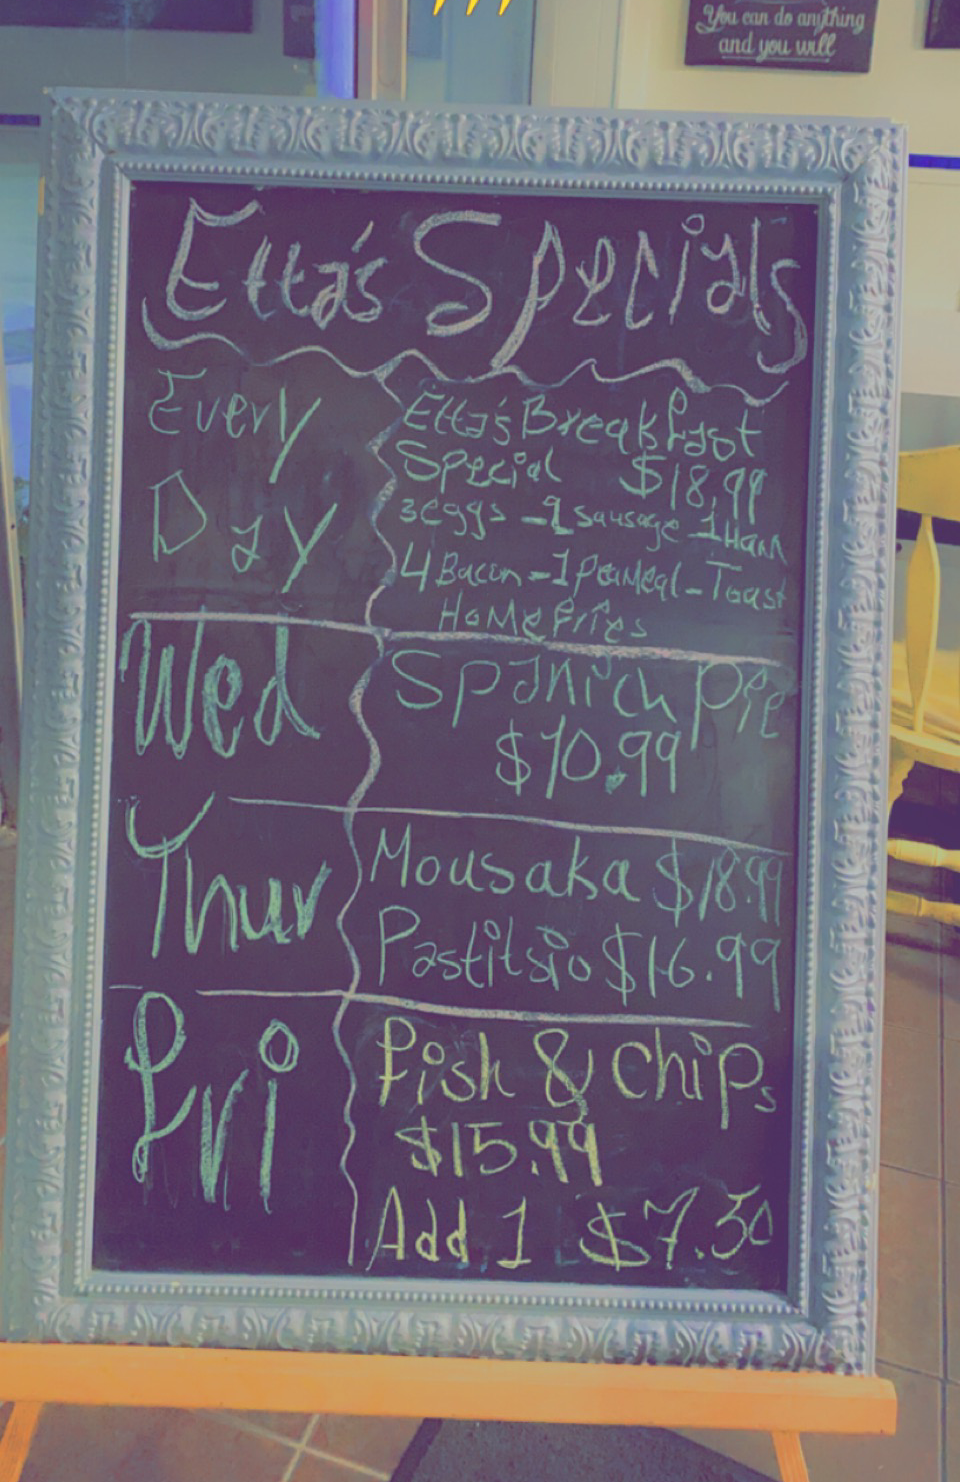 You can do anything
and you will
Etta's Specials
Every
Day
Etta's Breakfast
Special $18.99
3eggs - 2 sausage - 1 Ham
4 Bacon - 1 Peameal - Toast
HoMe fries
Wed
Spanich pie
$10.99
Thur
Mousaka $18.99
Pastitsio $16.99
Fri
Fish & Chips
$15.99
Add 1 $7.50